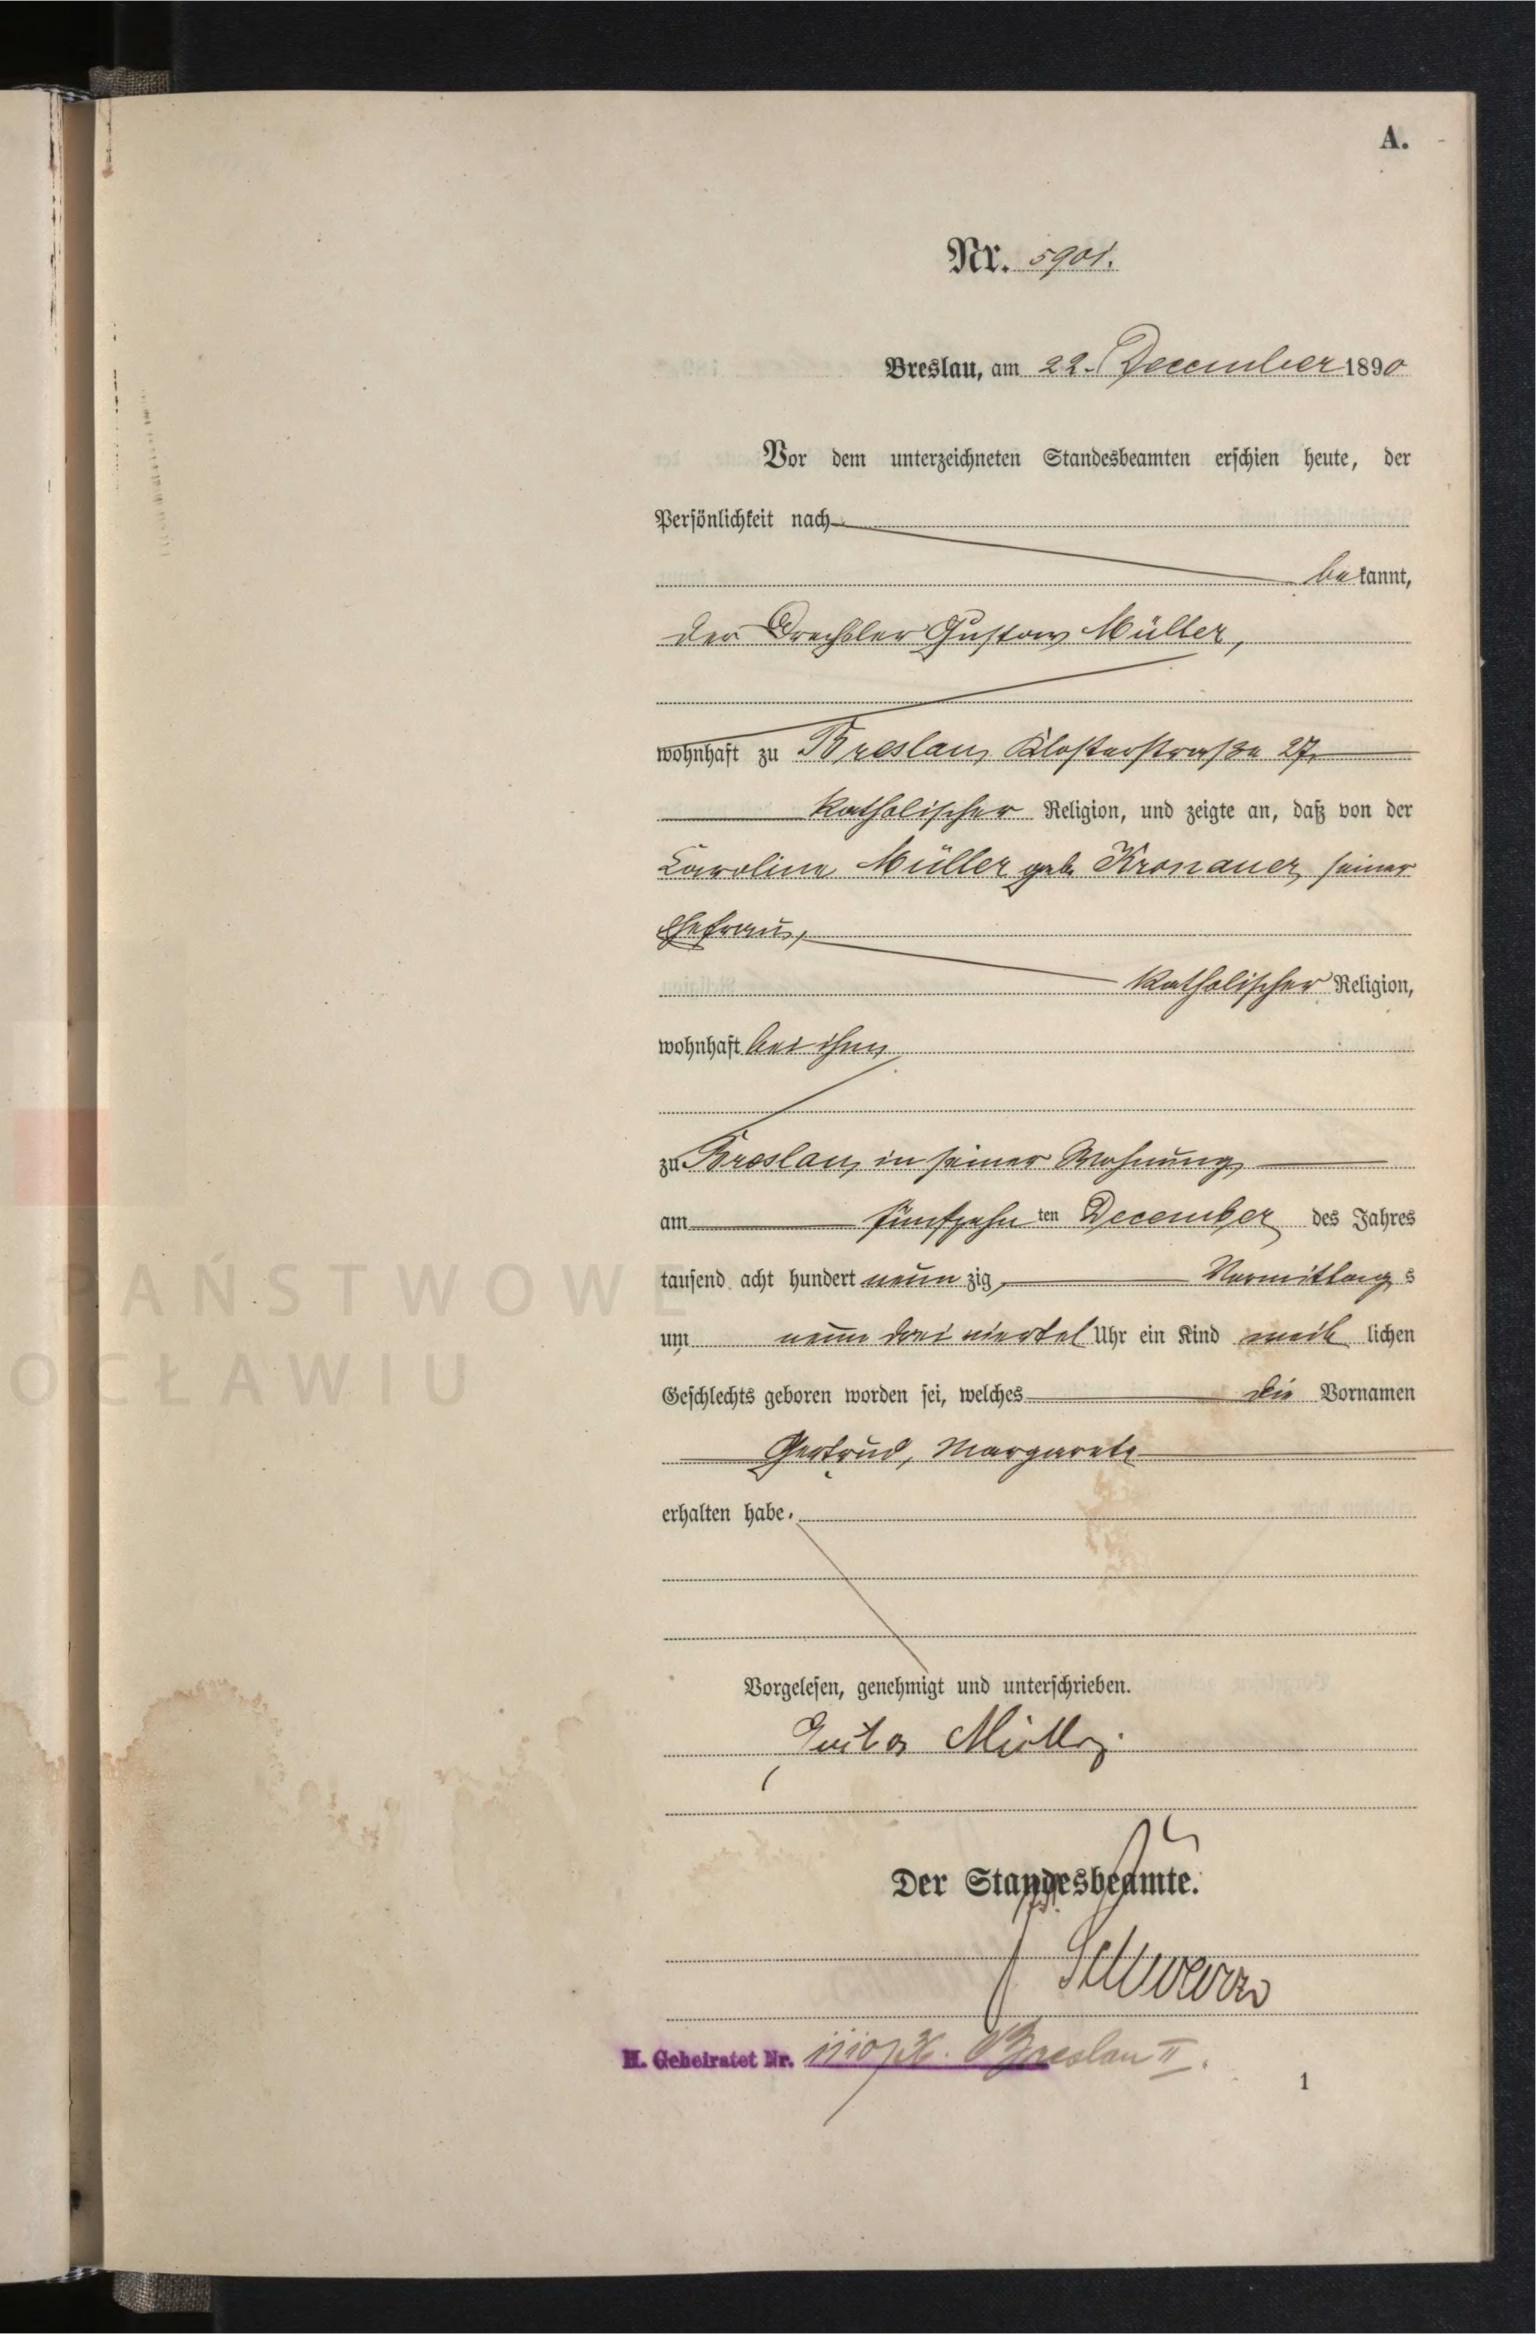 A.
Nr. 5901.
Breslau, am 22. December 1890
Vor dem unterzeichneten Standesbeamten erschien heute, der
Persönlichkeit nach
bekannt,
der Drechsler Gustav Müller,
wohnhaft zu Breslau, Klosterstraße 27,
katholischer Religion, und zeigte an, daß von der
Caroline Müller geb. Kronauer, seiner
Ehefrau,
katholischer Religion,
wohnhaft bei ihm
zu Breslau, in seiner Wohnung,
am fünfzehn ten December des Jahres
tausend acht hundert neun zig, Vormittags
um neun drei viertel Uhr ein Kind weib lichen
Geschlechts geboren worden sei, welches die Vornamen
Gertrud, Margarete
erhalten habe.
PAŃSTWOWE
OCŁAWIU
Vorgelesen, genehmigt und unterschrieben.
Gustav Müller.
Der Standesbeamte.
H. Geheiratet Nr. Breslau II.
1